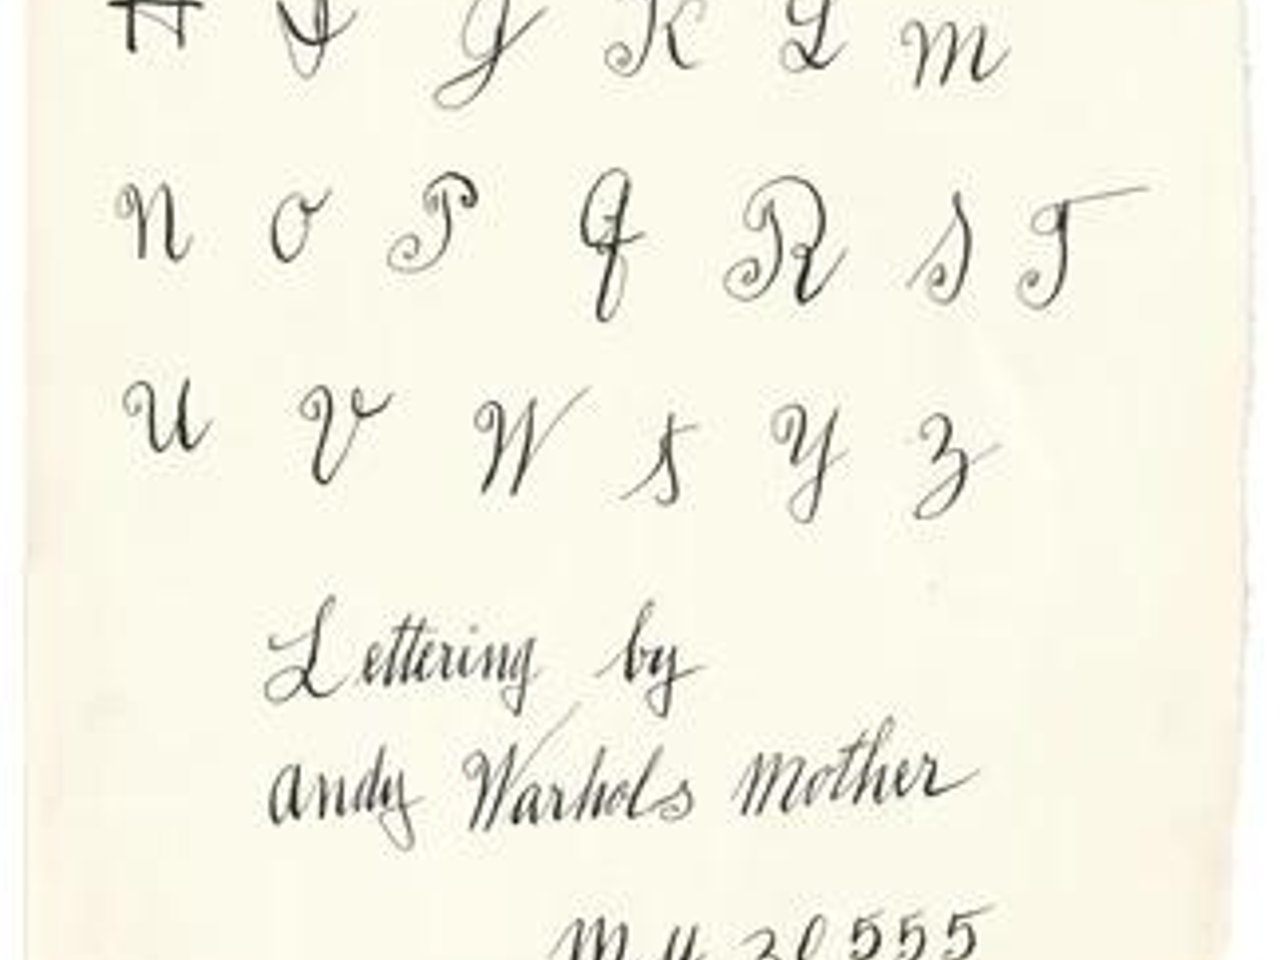 H I J K L m
n o P q R S T
u v W x y z
Lettering by
andy Warhols mother